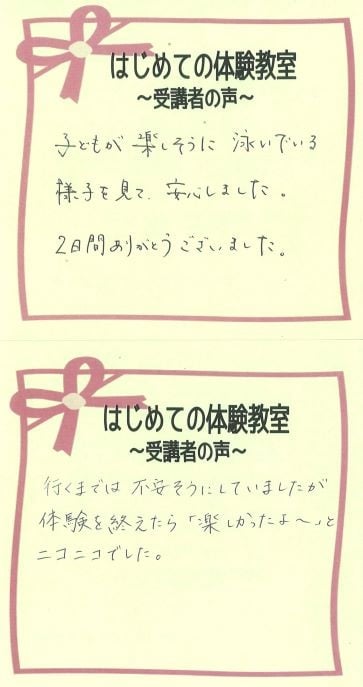 はじめての体験教室
～受講者の声～
子どもが楽しそうに泳いでいる
様子を見て、安心しました。
2日間ありがとうございました。
はじめての体験教室
～受講者の声～
行くまでは不安そうにしていましたが
体験を終えたら「楽しかったよ～」と
ニコニコでした。